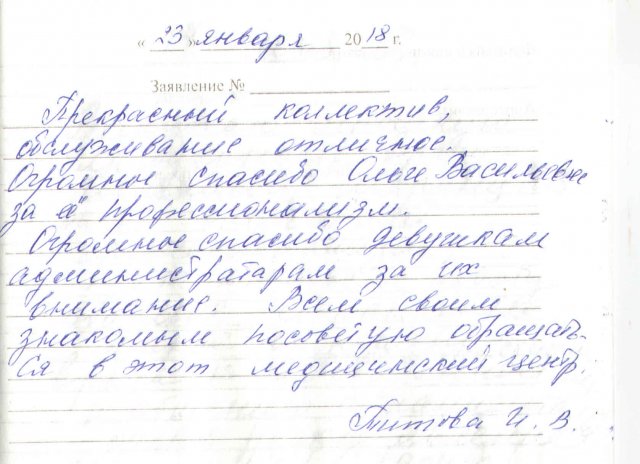 « 23 » января 2018 г.
Заявление №
Прекрасный коллектив,
обслуживание отличное.
Огромное спасибо Ольге Васильевне
за её профессионализм.
Огромное спасибо девушкам
администратарам за их
внимание. Всем своим
знакомым посоветую обращать-
ся в этот медицинский центр.
Титова И. В.